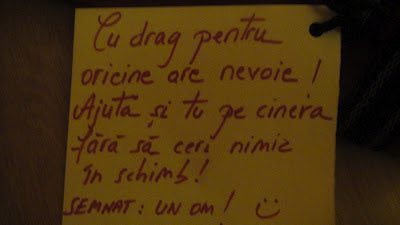 Cu drag pentru
oricine are nevoie!
Ajută și tu pe cineva
fără să ceri nimic
în schimb!
SEMNAT: UN OM! ☺